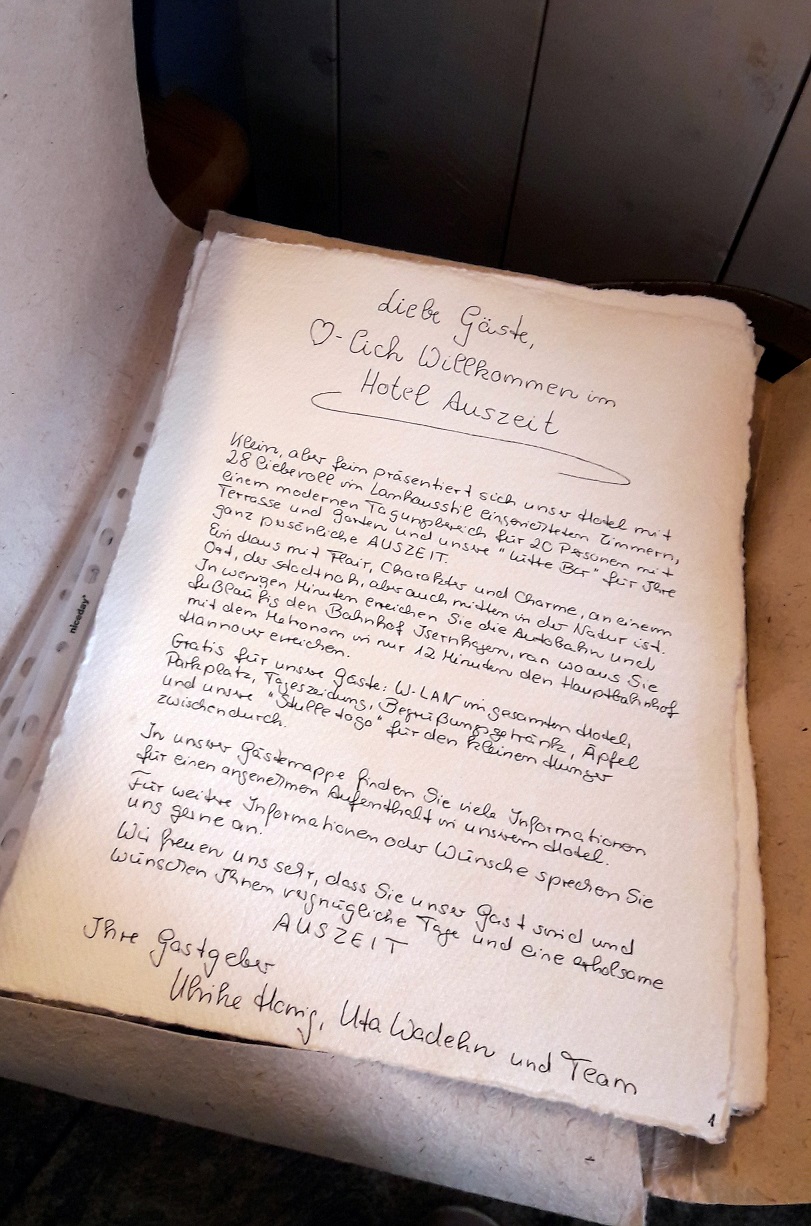 Liebe Gäste,
♡-lich Willkommen im
Hotel Auszeit
Klein, aber fein präsentiert sich unser Hotel mit
28 liebevoll im Landhausstil eingerichteten Zimmern,
einem modernen Tagungsbereich für 20 Personen mit
Terrasse und Garten und unsere "Hütte Bar" für Ihre
ganz persönliche AUSZEIT.
Ein Haus mit Flair, Charakter und Charme, an einem
Ort, der stadtnah, aber auch mitten in der Natur ist.
In wenigen Minuten erreichen Sie die Autobahn und
fußläufig den Bahnhof Isernhagen, von wo aus Sie
mit dem Metronom in nur 12 Minuten den Hauptbahnhof
Hannover erreichen.
Gratis für unsere Gäste: W-LAN im gesamten Hotel,
Parkplatz, Tageszeitung, Begrüßungsgetränk, Äpfel
und unsere "Stulle to go" für den kleinen Hunger
zwischendurch.
In unserer Gästemappe finden Sie viele Informationen
für einen angenehmen Aufenthalt in unserem Hotel.
Für weitere Informationen oder Wünsche sprechen Sie
uns gerne an.
Wir freuen uns sehr, dass Sie unser Gast sind und
wünschen Ihnen vergnügliche Tage und eine erholsame
AUSZEIT
Ihre Gastgeber
Ulrike Honig, Uta Wadehn und Team
1
niceday